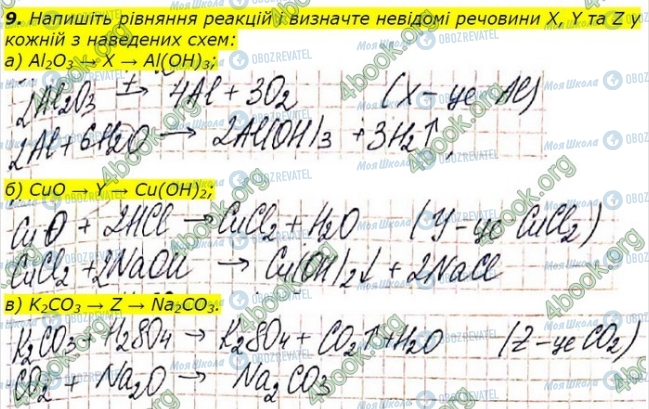 9. Напишіть рівняння реакцій і визначте невідомі речовини X, Y та Z у
кожній з наведених схем:
а) Al₂O₃ → X → Al(OH)₃;
2Al₂O₃ → 4Al + 3O₂ (X – це Al)
2Al + 6H₂O → 2Al(OH)₃ + 3H₂↑
б) CuO → Y → Cu(OH)₂;
CuO + 2HCl → CuCl₂ + H₂O (Y – це CuCl₂)
CuCl₂ + 2NaOH → Cu(OH)₂↓ + 2NaCl
в) K₂CO₃ → Z → Na₂CO₃.
K₂CO₃ + H₂SO₄ → K₂SO₄ + CO₂↑ + H₂O (Z – це CO₂)
CO₂ + Na₂O → Na₂CO₃